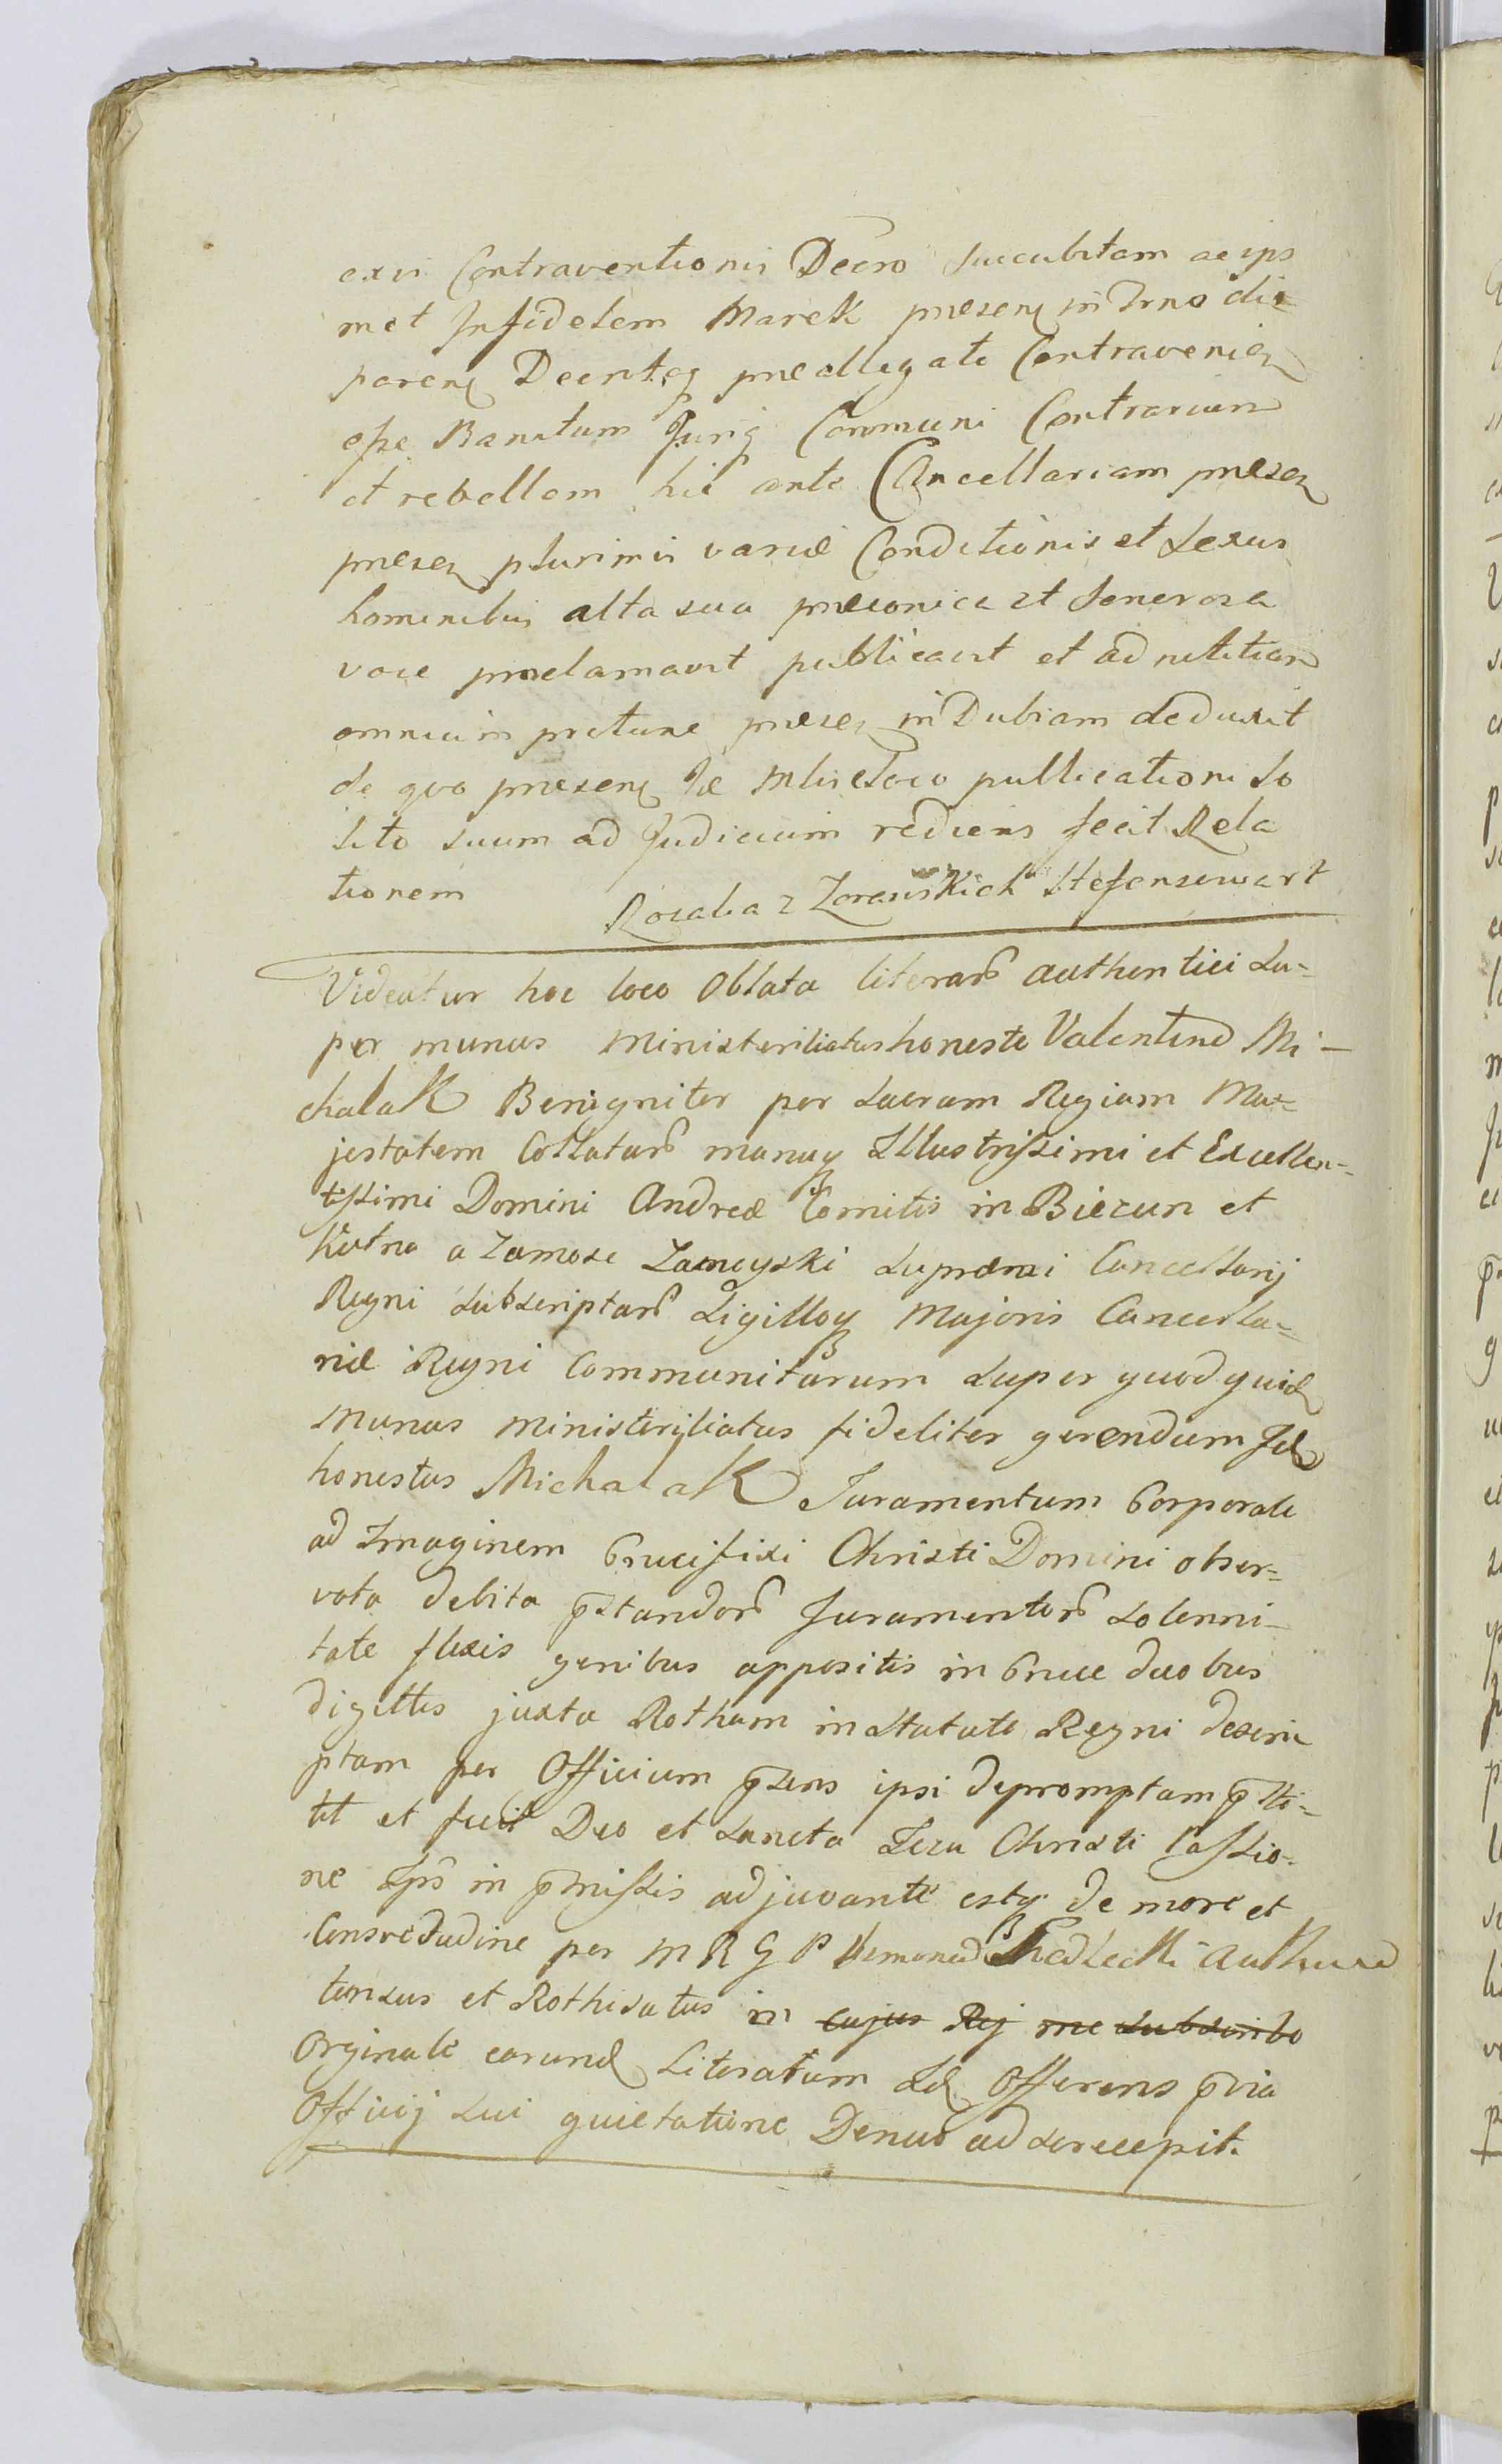 ex vi Contraventionis Decro succubitam ac ips
met Infidelem Marek presen in Trno die
paren Decritq preallegati Contravenien
esse Banitum Juriq Communi Contrarium
et rebellem hic ante Cancellariam presen
presen plurimis variæ Conditionis et Sexus
hominibus alta sua preconica et Sonorosa
voce proclamavit publicavit et ad notitiam
omnium protunc presen indubiam deduxit
de quo presens
lito suum ad Judicium rediens fecit Rela
tionem Rozalia z Zorawskich
Videatur hoc loco Oblata literarũ authentici Su=
per munus ministerialiatus honesto Valentino Mi-
chalak Benigniter per Sacram Regiam Ma=
jestatem Collatarũ manuq Illustrissimi et Excellen=
tissimi Domini Andreæ Comitis in Biezun et
Kutno a Zamosc Zamoyski Supremi Cancellarij
Regni Subscriptarũ Sigilloq Majoris Cancella=
riæ Regni Communitarum super quod quid
Munus ministerialiatus fideliter gerendum Id
honestus Michalak Juramentum Corporale
ad Imaginem Crucifixi Christi Domini obser=
vata debita p̄standorũ Juramentorũ Solenni-
tate flexis genibus appositis in Cruce duobus
digittis juxta Rotham in Statuto Regni descri
ptam per Officium p̄sens ipsi depromptam p̄sti=
tit et fecit Deo et Sancta Jesu Christi Passio-
ne Ips in p̄missis adjuvante estq de more et
Consvetudine per M R G P
tensus et Rothisatus in cujus Rej me subscribo
Orginale earund Literarum Id Offerens p̄via
Officij sui quietatione Denuo ad se recepit.